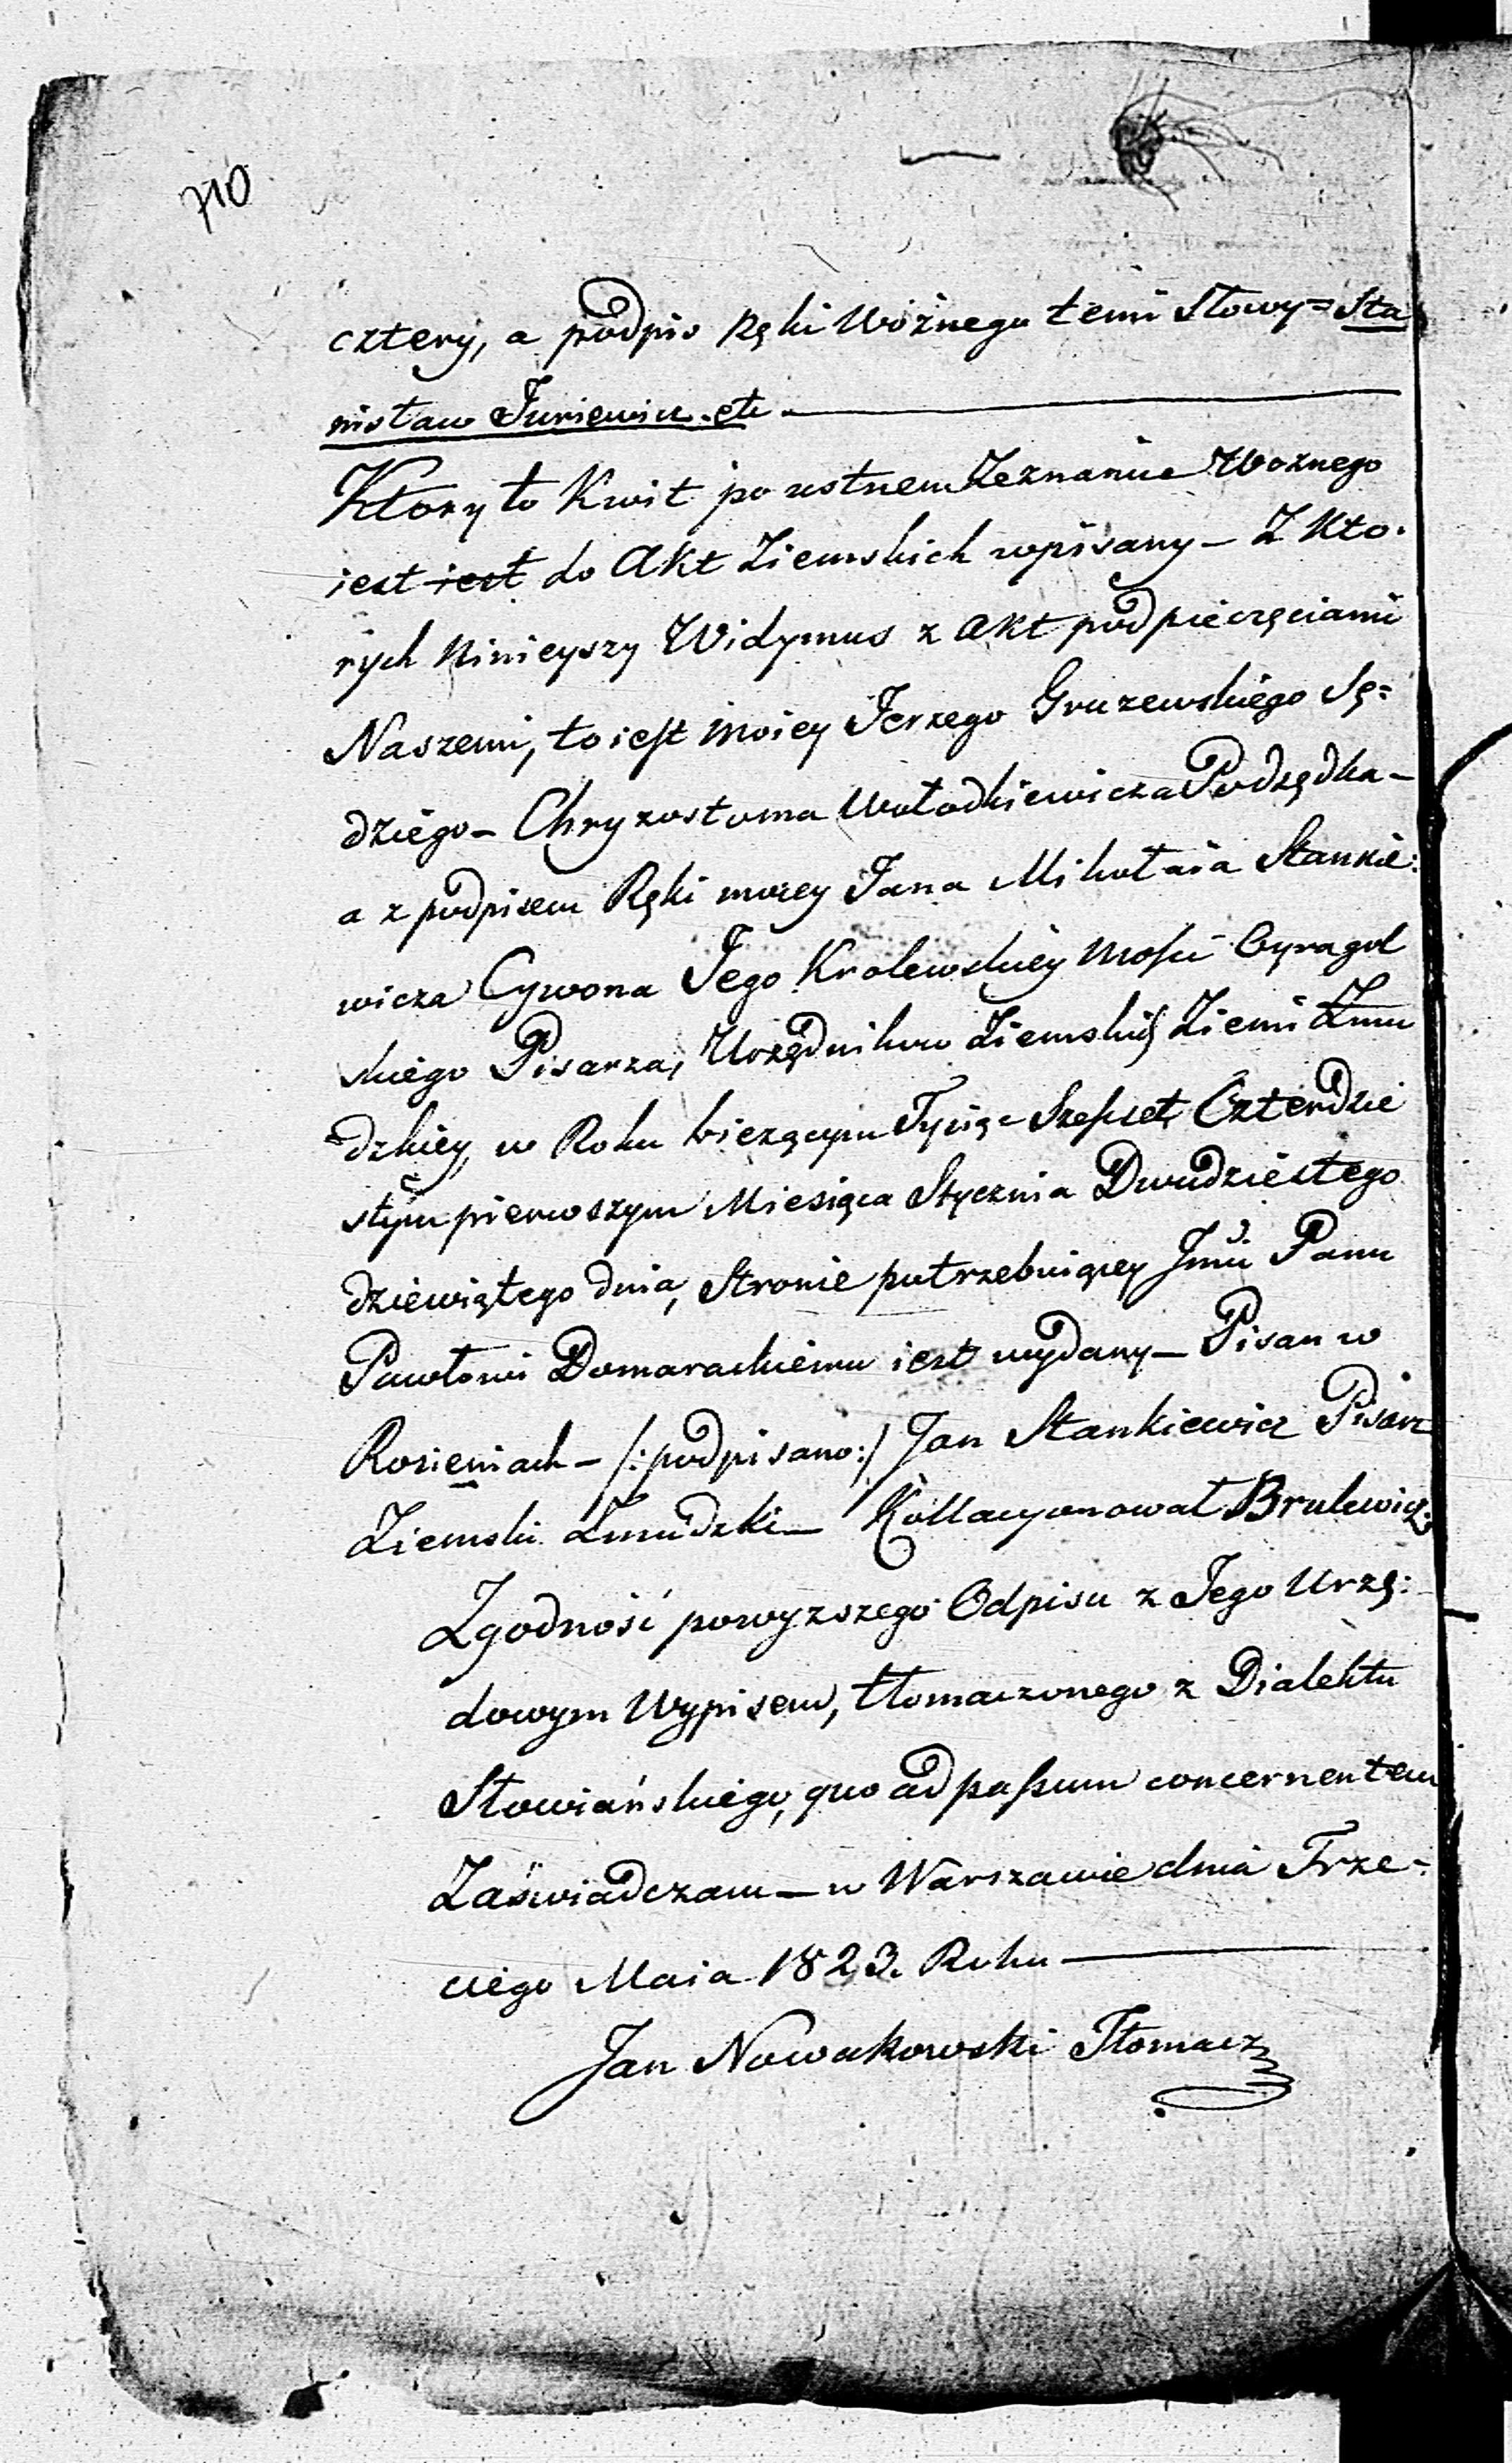 710
cztery, a podpis Ręki Woźnego temi Słowy = Sta
nisław Juriewicz. etc
Ktory to Kwit po ustnem Zeznaniu Woznego
iest iest do Akt Ziemskich wpisany – Z Kto.
rych Ninieyszy Widymus z Akt pod pieczęciami
Naszemi, to iest moiey Jerzego Gruzewskiego Sę=
dziego – Chryzostoma Wołodkiewicza Podsędka –
a z podpisem Ręki moiey Jana Mikołaia Stankie:
wicza Cywona Jego Krolewskiey Mości Ayragol
skiego Pisarza, Urzędnikow Ziemskich Ziemi Żmu
dzkiey, w Roku bieżącym Tysiąc Szeset Czterdzie
stym pierwszym Miesiąca Stycznia Dwudziestego
dziewiątego dnia, Stronie potrzebuiącey Jmci Panu
Pawłowi Domarackiemu iest wydany – Pisan w
Rosieniach – /: podpisano :/ Jan Stankiewicz Pisarz
Ziemski Żmudzki – Kollacyonował Brulewicz.
Zgodność powyzszego Odpisu z Jego Urzę:
dowym Wypisem, tłomaczonego z Dialektu
Słowiańskiego, quo ad passum concernentem
Zaświadczam – w Warszawie dnia Trze-
ciego Maia 1823. Roku
Jan Nowakowski Tłomacz